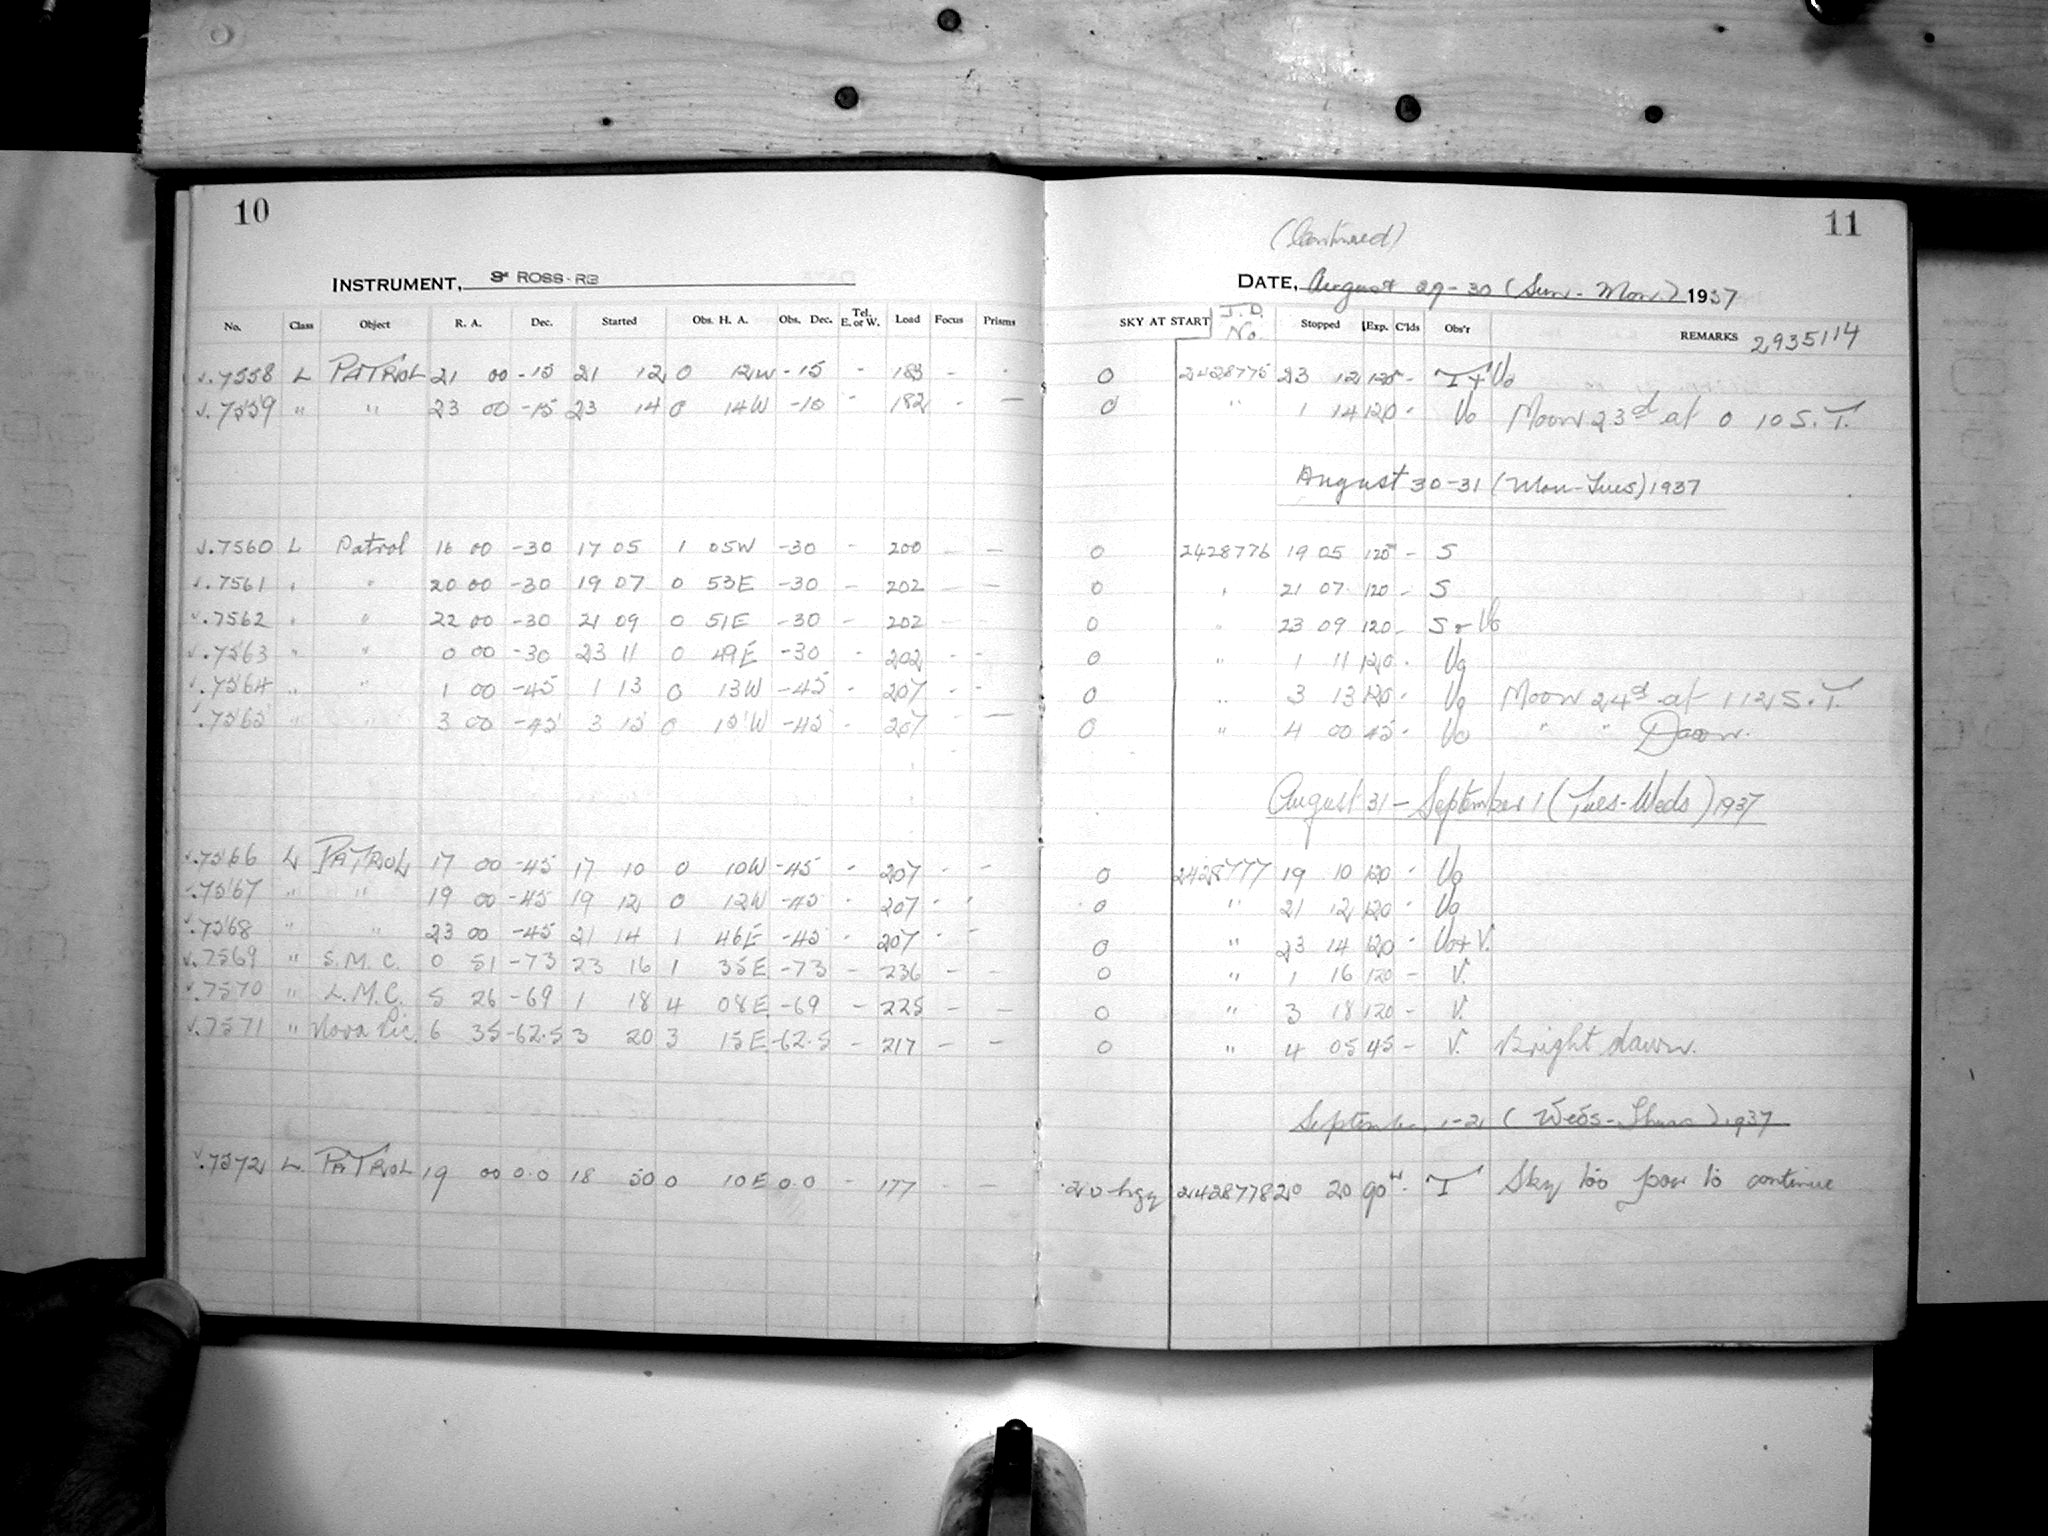 10
INSTRUMENT, 3" ROSS-RB
No. Class Object R. A. Dec. Started Obs. H. A. Obs. Dec. Tel. E. or W. Load Focus Prisms
7558 L PATROL 21 00 -15 21 12 0 12W -15 - 183 - -
7559 " " 23 00 -15 23 14 0 14W -15 - 182 - -
7560 L Patrol 16 00 -30 17 05 1 05W -30 - 200 - -
7561 " " 20 00 -30 19 07 0 53E -30 - 202 - -
7562 " " 22 00 -30 21 09 0 51E -30 - 202 - -
7563 " " 0 00 -30 23 11 0 49E -30 - 202 - -
7564 " " 1 00 -45 1 13 0 13W -45 - 207 - -
7565 " " 3 00 -45 3 15 0 15W -45 - 207 - -
7566 L PATROL 17 00 -45 17 10 0 10W -45 - 207 - -
7567 " " 19 00 -45 19 12 0 12W -45 - 207 - -
7568 " " 23 00 -45 21 14 1 46E -45 - 207 - -
7569 " S.M.C. 0 51 -73 23 16 1 35E -73 - 236 - -
7570 " L.M.C. 5 26 -69 1 18 4 08E -69 - 225 - -
7571 " Nova Pic. 6 35 -62.5 3 20 3 15E -62.5 - 217 - -
7572 L. PATROL 19 00 0.0 18 50 0 10E 0.0 - 177 - -
11
(Continued)
DATE, August 29-30 (Sun-Mon.) 1937
SKY AT START J.D. No. Stopped Exp. C'lds Obs'r REMARKS 2935114
0 2428775 23 12 120 - T+Vo
0 " 1 14 120 - Vo Moon 23d at 0 10 S.T.
August 30-31 (Mon-Tues) 1937
0 2428776 19 05 120 - S
0 " 21 07 120 - S
0 " 23 09 120 - S+Vo
0 " 1 11 120 - Vo
0 " 3 13 120 - Vo Moon 24d at 1 12 S.T.
0 " 4 00 45 - Vo " " Dawn.
August 31-September 1 (Tues-Weds) 1937
0 2428777 19 10 120 - Vo
0 " 21 12 120 - Vo
0 " 23 14 120 - Vo+V.
0 " 1 16 120 - V.
0 " 3 18 120 - V.
0 " 4 05 45 - V. Bright dawn.
September 1-2 (Weds-Thurs) 1937
20 hzy 2428778 20 20 90 - T Sky too poor to continue